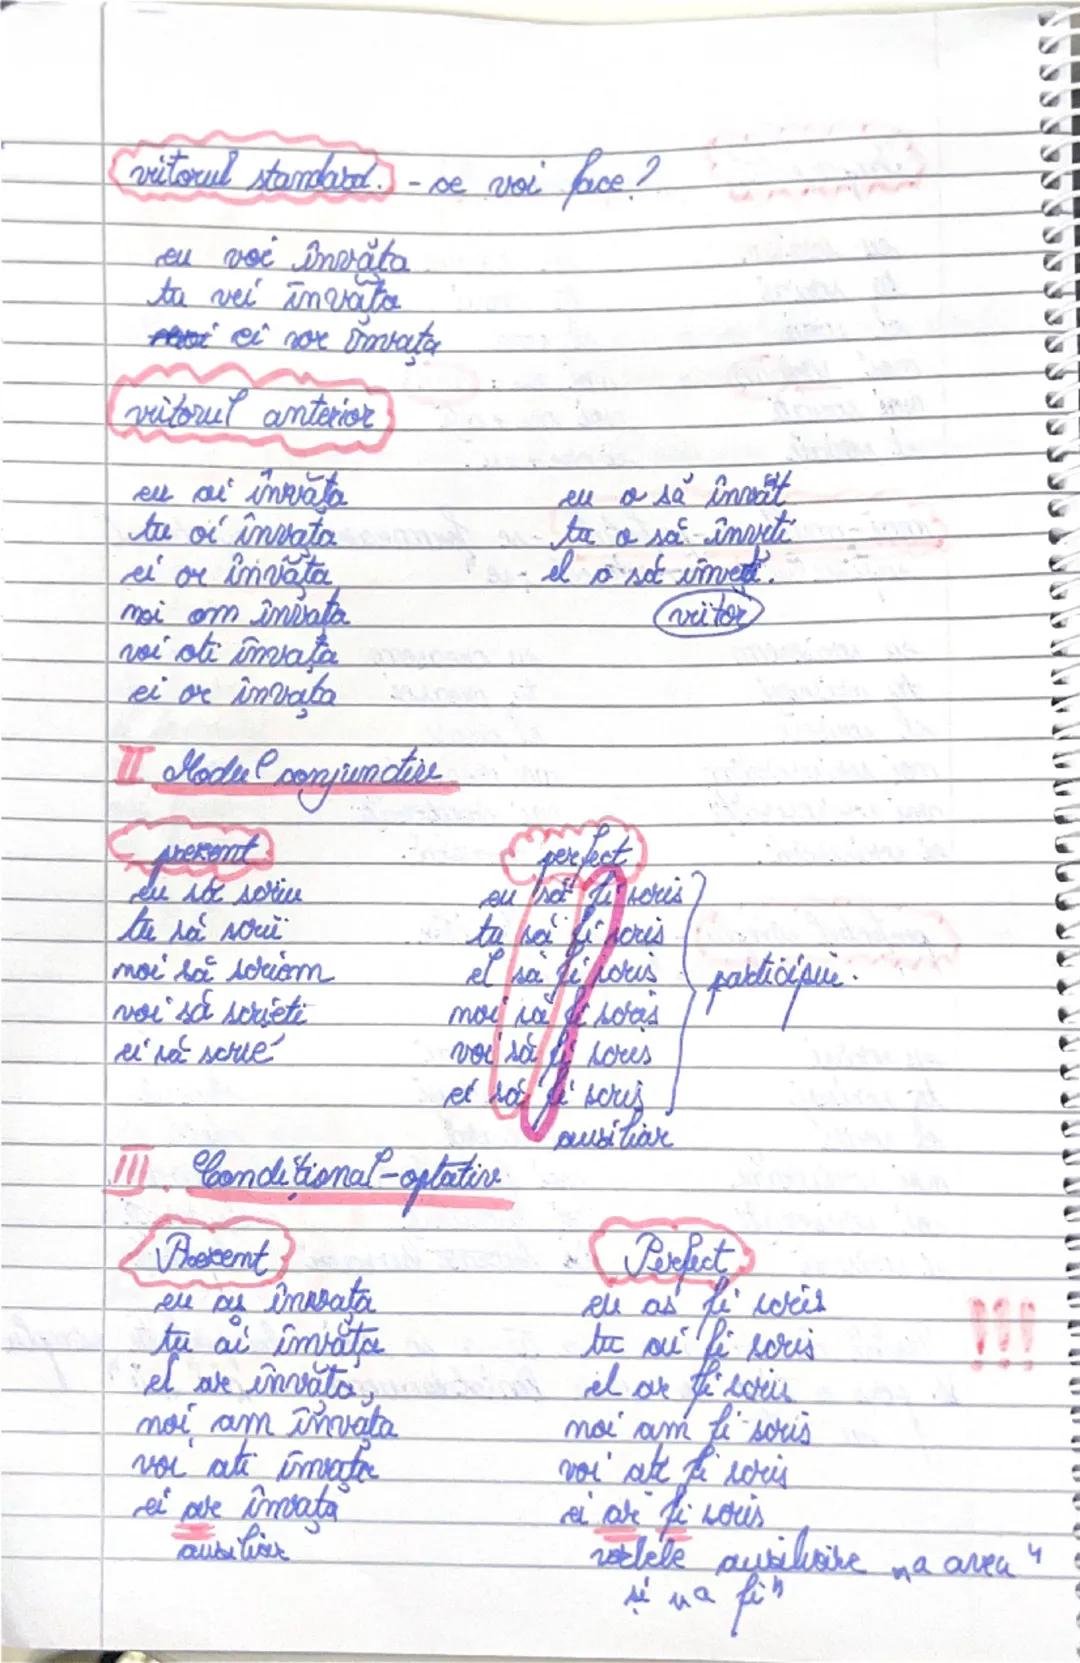 viitorul standard. - ce voi face?
eu voi învăța
tu vei învăța
ei vor învăța
viitorul anterior
eu oi învăța
tu oi învăța
ei or învăța
noi om învăța
voi oti învăța
ei or învăța
eu o să învăt
tu o să înveti
el o să învețe.
viitor
II Modul conjunctiv
prezent
eu să scriu
tu să scrii
noi să scriem
voi să scrieti
ei să scrie
perfect
eu să fi scris
tu să fi scris
el să fi scris
noi să fi scris
voi să fi scris
ei să fi scris
participiu.
auxiliar
III. Condițional-optativ
Prezent
eu as învăța
tu ai învăța
el are învăța
noi am învăța
voi ati învăța
ei are învăța
auxiliar
Perfect
eu as fi scris
tu ai fi scris
el ar fi scris
noi am fi scris
voi ati fi scris
ei ar fi scris
!!!
verbele auxiliare „a avea"
si „a fi"